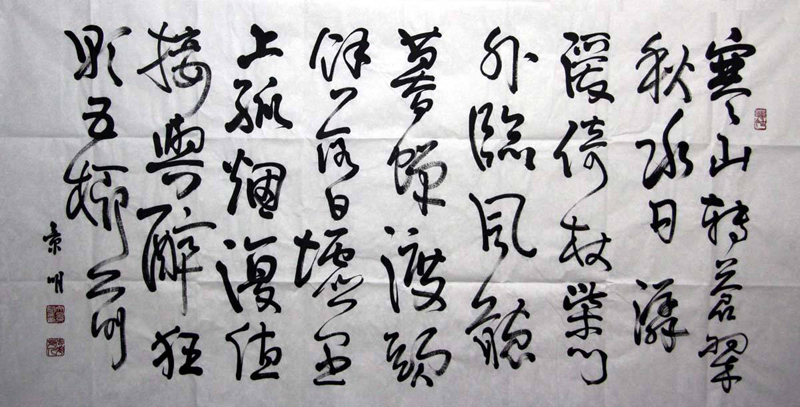 寒山轉蒼翠
秋水日潺
湲倚杖柴門
外臨風聽
暮蟬渡頭
餘落日墟里
上孤煙復值
接輿醉狂
歌五柳前
景明